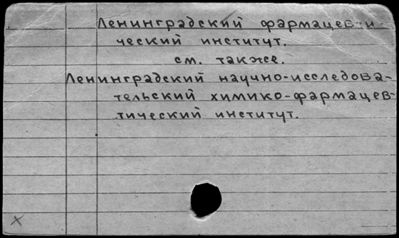 Ленинградский фармацевти-
ческий институт.
см. также.
Ленинградский научно-исследова-
тельский химико-фармацев-
тический институт.
x